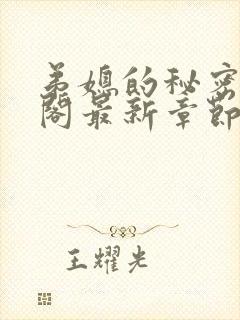 弟媳的秘密
阁最新章节
王耀光